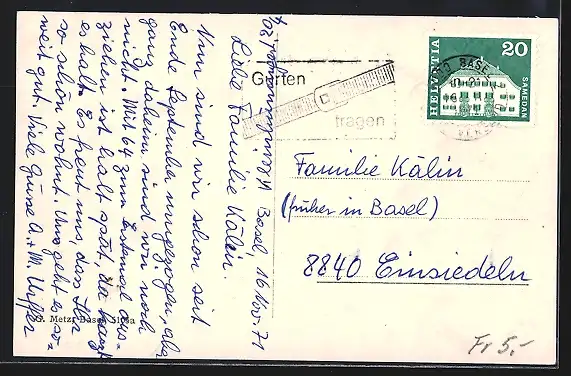 Basel 16 Nov. 71
Liebe Familie Kälin
Nun sind wir schon seit
Ende September umgezogen, aber
ganz daheim sind wir noch
nicht. Mit 64 zum Erstmal aus-
ziehen ist halt spät, da
es halt. Es freut uns, dass Ihr
so schön wohnt. Uns geht es so-
weit gut. Viele Grüsse A. + M.
G. Metz, Basel
Gurten
tragen
HELVETIA
20
SAMEDAN
BASEL
Familie Kälin
(früher in Basel)
8840 Einsiedeln
Fr 5.-